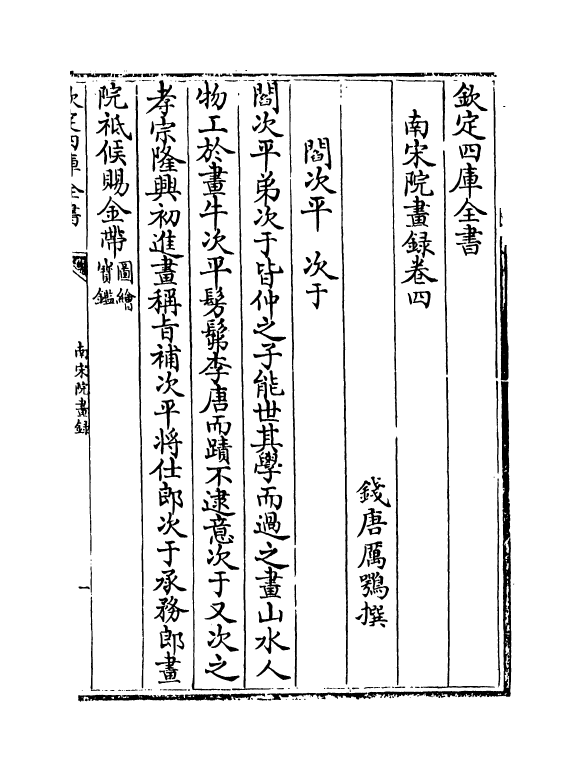 欽定四庫全書
南宋院畫録卷四
錢唐厲鶚撰
閻次平　次于
閻次平弟次于皆仲之子能世其學而過之畫山水人
物工於畫牛次平髣髴李唐而蹟不逮意次于又次之
孝宗隆興初進畫稱旨補次平將仕郎次于承務郎畫
院祗候賜金帶圖繪寶鑑
欽定四庫全書
南宋院畫録
一